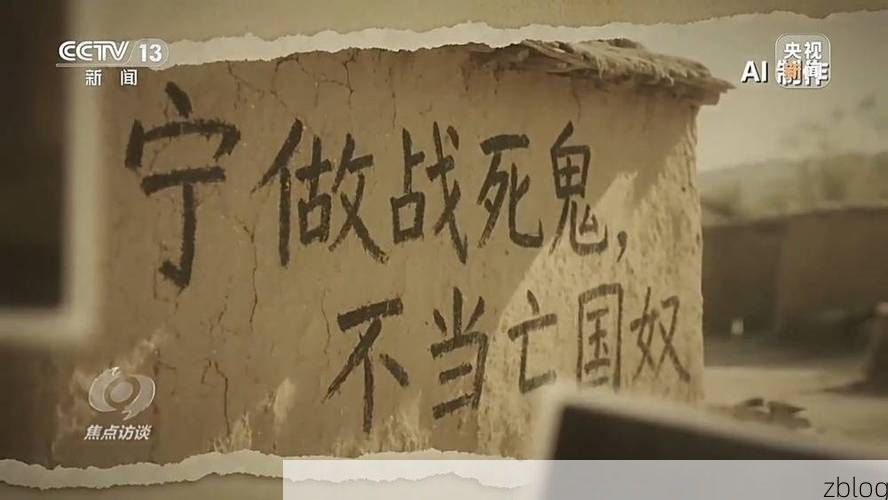 CCTV 13
新闻
央视
新闻
AI制作
宁做战死鬼,
不当亡国奴
焦点访谈
zblog